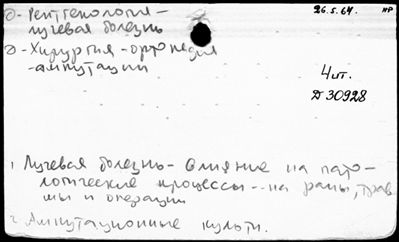 Ə - Рентгенология -
лучевая болезнь
26.5.64. НР
Ə - Хирургия - ортопедия
- ампутации
4 шт.
Д 30928
1 Лучевая болезнь - влияние на пато-
логические процессы -- на раны, трав
мы и операции
2 Ампутационные культи.